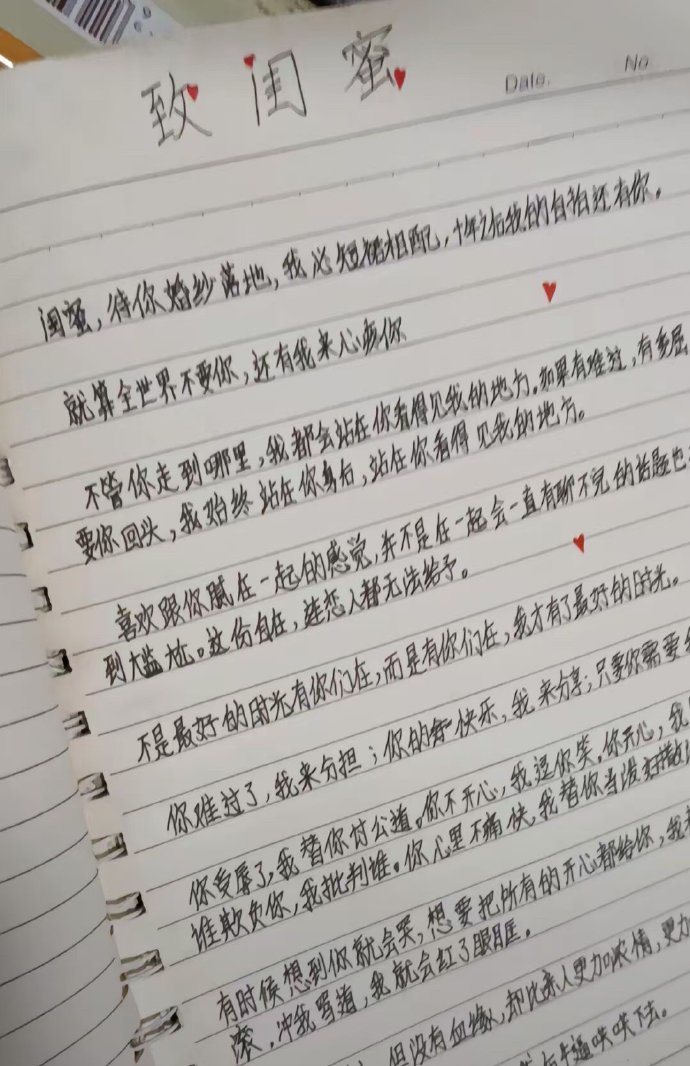 致闺蜜
Date.
No.
闺蜜，待你婚纱落地，我必短裙相配，十年之后我的自拍还有你。
就算全世界不要你，还有我来心疼你
不管你走到哪里，我都会站在你看得见我的地方。如果有难过，有委屈
要你回头，我始终站在你身后，站在你看得见我的地方。
喜欢跟你腻在一起的感觉，并不是在一起会一直有聊不完的话题也
到尴尬。这份自在，连恋人都无法给予。
不是最好的时光有你们在，而是有你们在，我才有了最好的时光。
你难过了，我来分担；你的快乐，我来分享，只要你需要
你受辱了，我替你讨公道。你不开心，我逗你笑。你开心，我
谁欺负你，我批判谁。你心里不痛快，我替你当沙
有时候想到你就会哭，想要把所有的开心都给你，我
滚，冲我骂道，我就会红了眼眶。
但没有血缘，却比亲人更加浓情，更加
下去。